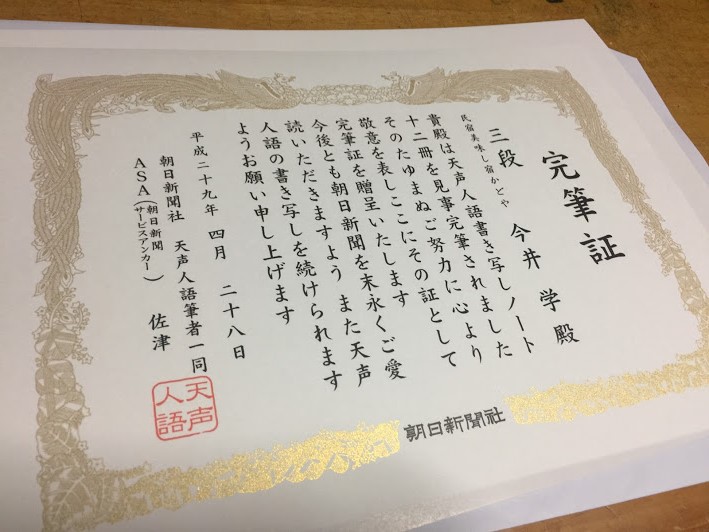 完筆証
三段
民宿美味し宿かどや
今井 学 殿
貴殿は天声人語書き写しノート
十二冊を見事完筆されました
そのたゆまぬご努力に心より
敬意を表しここにその証として
完筆証を贈呈いたします
今後とも朝日新聞を末永くご愛
読いただきますよう また天声
人語の書き写しを続けられます
ようお願い申し上げます
平成二十九年 四月 二十八日
朝日新聞社 天声人語筆者一同
ASA(朝日新聞サービスアンカー) 佐津
天声人語
朝日新聞社